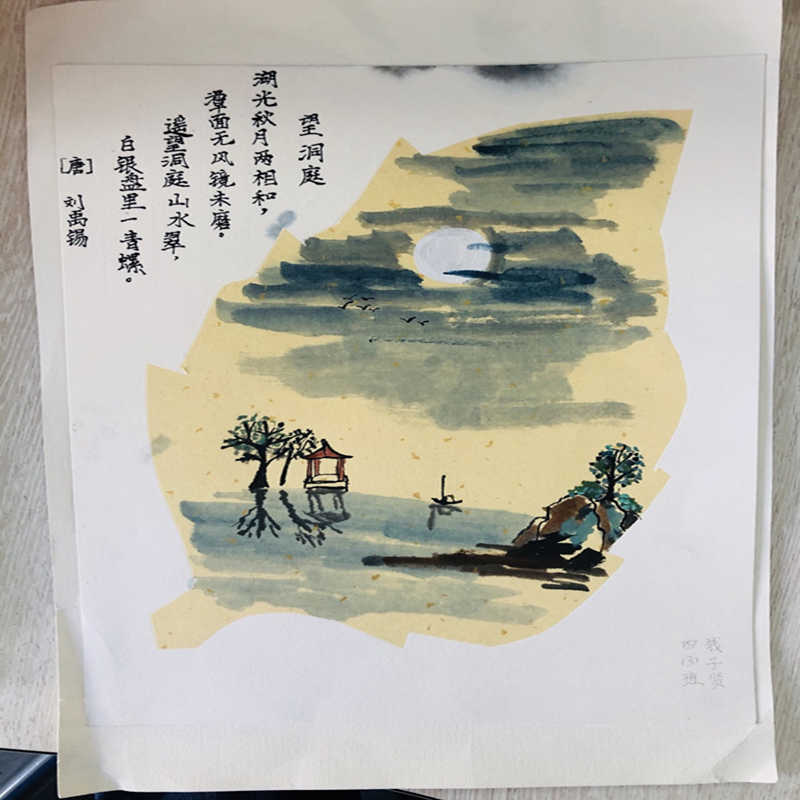 望洞庭
湖光秋月两相和,
潭面无风镜未磨。
遥望洞庭山水翠,
白银盘里一青螺。
[唐] 刘禹锡
子贤
四(3)班